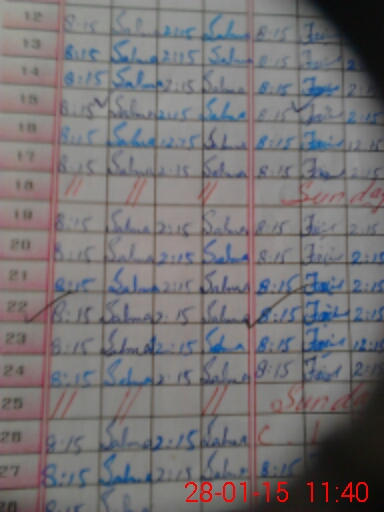 12 8:15 Salma 2:15 Salma 8:15
13 8:15 Salma 2:15 Salma 8:15 2:15
14 8:15 Salma 2:15 Salma 8:15 2:15
15 8:15 Salma 2:15 Salma 8:15 2:15
16 8:15 Salma 12:15 Salma 8:15 12:15
17 8:15 Salma 2:15 Salma 8:15 2:15
18 // // // Sunday
19 8:15 Salma 2:15 Salma 8:15 2:15
20 8:15 Salma 2:15 Salma 8:15 2:15
21 8:15 Salma 2:15 Salma 8:15 2:15
22 8:15 Salma 2:15 Salma 8:15 2:15
23 8:15 Salma 2:15 Salma 8:15 12:15
24 8:15 Salma 2:15 Salma 8:15 2:15
25 // // // Sunday
26 8:15 Salma 2:15 Salma C.L
27 8:15 Salma 2:15 Salma 8:15
28
28-01-15 11:40